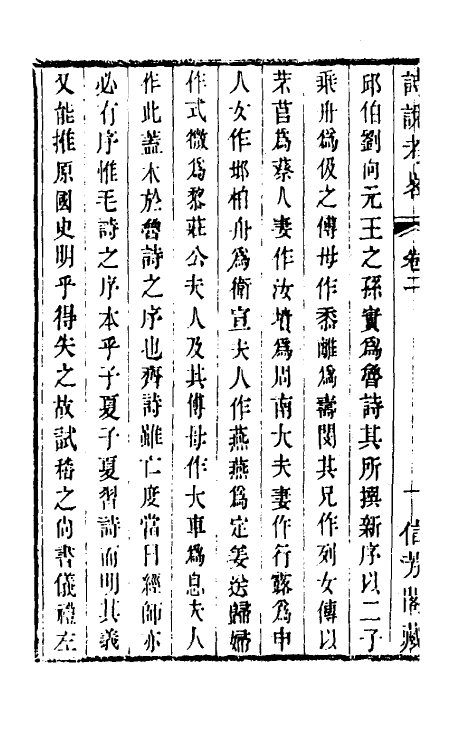 詩說考畧 卷二 十 信芳閣藏
邱伯劉向元王之孫實爲魯詩其所撰新序以二子
乘舟爲伋之傅母作黍離爲壽閔其兄作列女傳以
芣苢爲蔡人妻作汝墳爲周南大夫妻作行露爲申
人女作邶柏舟爲衛宣夫人作燕燕爲定姜送歸婦
作式微爲黎莊公夫人及其傅母作大車爲息夫人
作此蓋本於魯詩之序也齊詩雖亡度當日經師亦
必有序惟毛詩之序本乎子夏子夏習詩而明其義
又能推原國史明乎得失之故試稽之尚書儀禮左